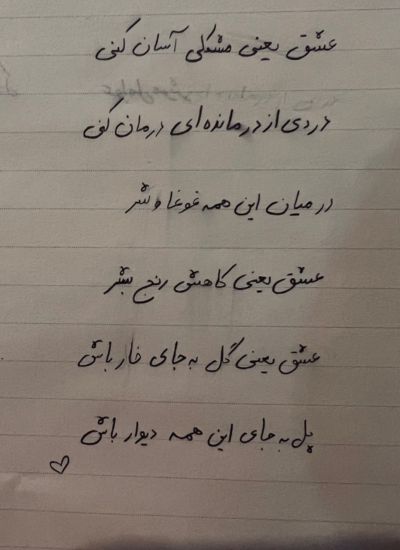 عشق یعنی مشکلی آسان کنی
دردی از درمانده ای درمان کنی
در میان این همه غوغا و شر
عشق یعنی کاهش رنج بشر
عشق یعنی گل به جای خار باش
پل به جای این همه دیوار باش